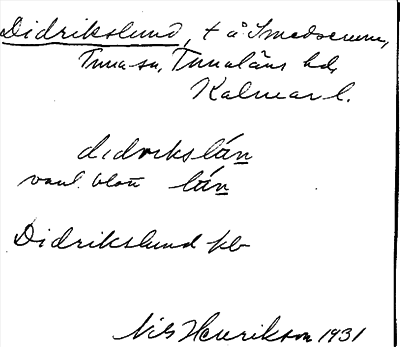 Didrikslund, t å Smedserum,
Tuna sn, Tunaläns hd,
Kalmar l.
didrikslán
vanl. blott lán
Didrikslund kb
Nils Henrikson 1931